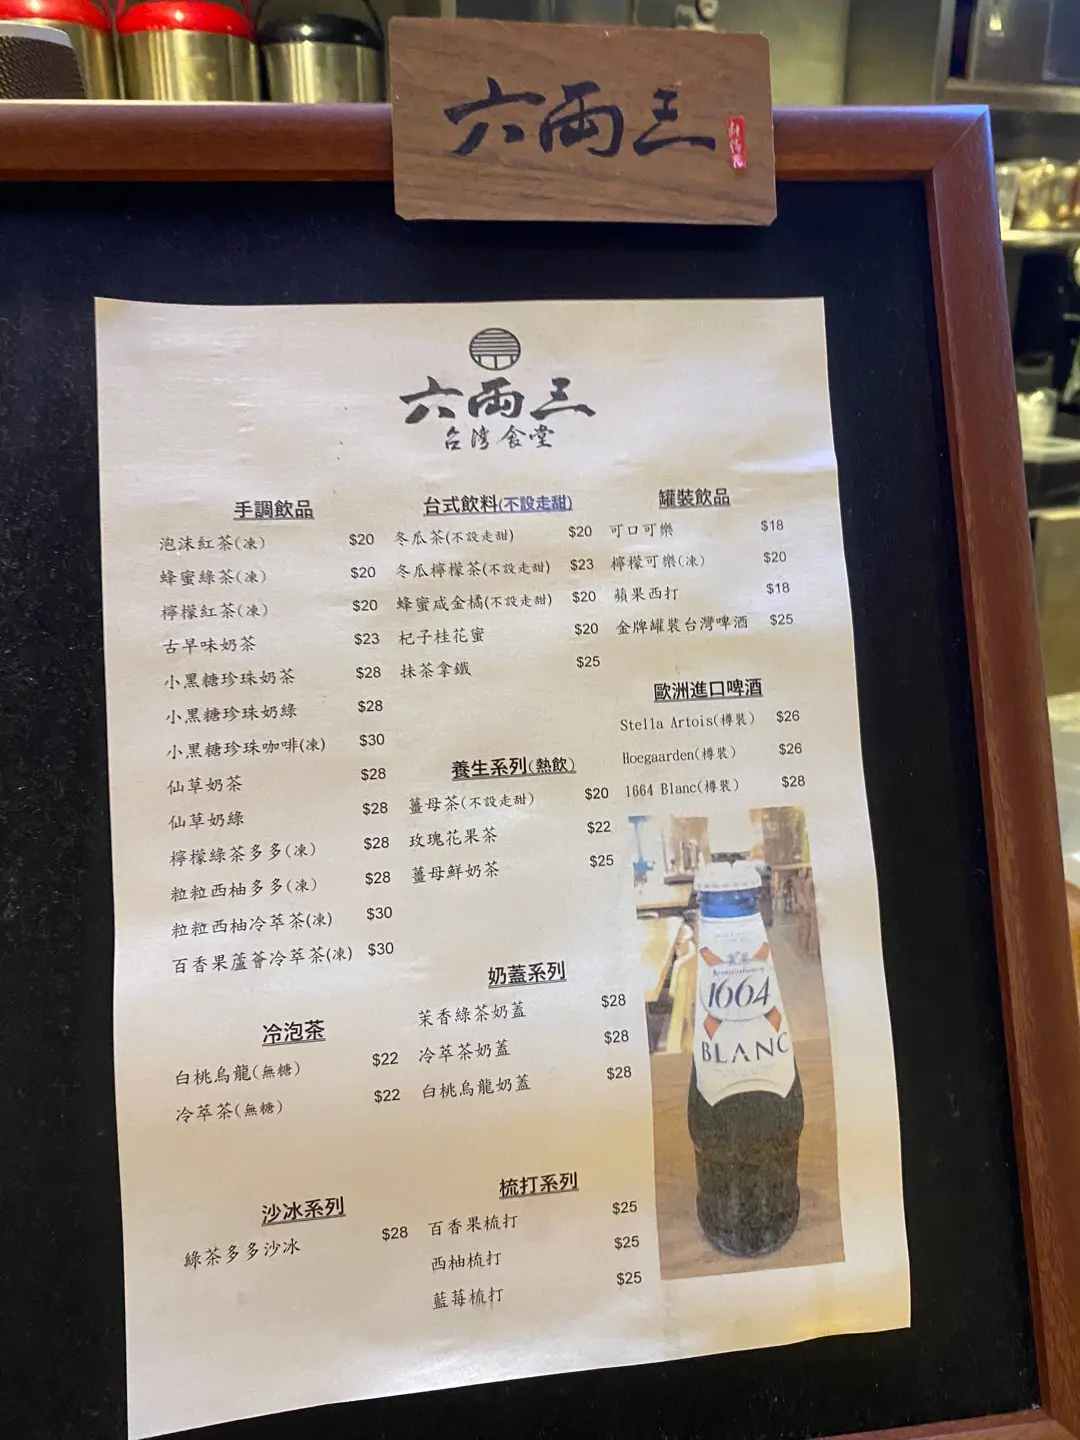 六両三
六両三
台灣食堂
手調飲品
泡沫紅茶(凍) $20
蜂蜜綠茶(凍) $20
檸檬紅茶(凍) $20
古早味奶茶 $23
小黑糖珍珠奶茶 $28
小黑糖珍珠奶綠 $28
小黑糖珍珠咖啡(凍) $30
仙草奶茶 $28
仙草奶綠 $28
檸檬綠茶多多(凍) $28
粒粒西柚多多(凍) $28
粒粒西柚冷萃茶(凍) $30
百香果蘆薈冷萃茶(凍) $30
冷泡茶
白桃烏龍(無糖) $22
冷萃茶(無糖) $22
沙冰系列
綠茶多多沙冰 $28
台式飲料(不設走甜)
冬瓜茶(不設走甜) $20
冬瓜檸檬茶(不設走甜) $23
蜂蜜咸金橘(不設走甜) $20
杞子桂花蜜 $20
抹茶拿鐵 $25
養生系列(熱飲)
薑母茶(不設走甜) $20
玫瑰花果茶 $22
薑母鮮奶茶 $25
奶蓋系列
茉香綠茶奶蓋 $28
冷萃茶奶蓋 $28
白桃烏龍奶蓋 $28
梳打系列
百香果梳打 $25
西柚梳打 $25
藍莓梳打 $25
罐裝飲品
可口可樂 $18
檸檬可樂(凍) $20
蘋果西打 $18
金牌罐裝台灣啤酒 $25
歐洲進口啤酒
Stella Artois(樽裝) $26
Hoegaarden(樽裝) $26
1664 Blanc(樽裝) $28
Kronenbourg
1664
BLANC